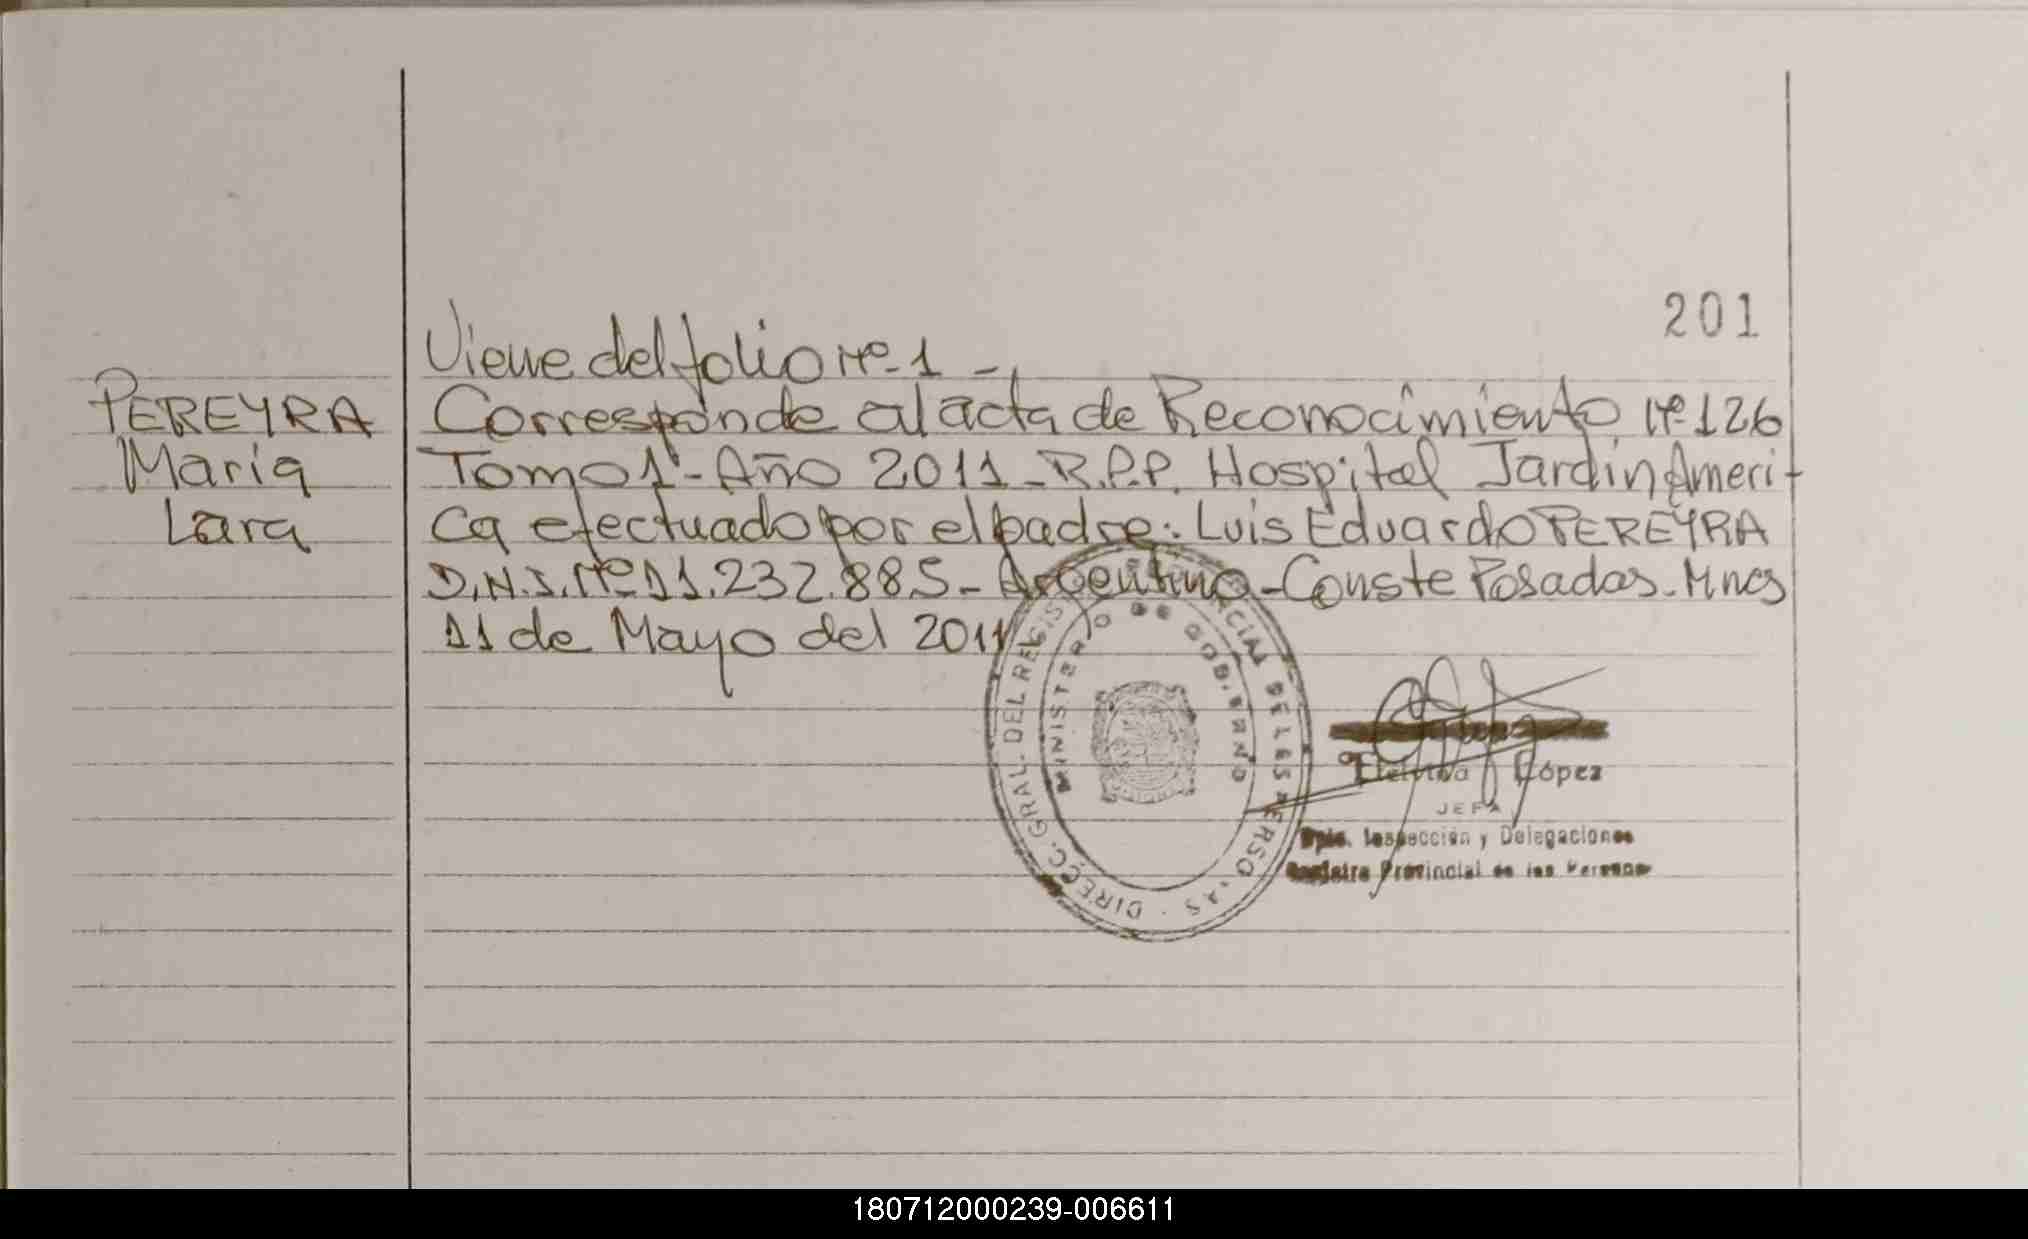 201
Viene del folio Nº 1 -
PEREYRA
Maria
Lara
Corresponde al acta de Reconocimiento Nº 126
Tomo 1º - Año 2011 - R.P.P. Hospital Jardin Ameri-
ca efectuado por el padre: Luis Eduardo PEREYRA
D.N.I. Nº 11.232.885 - Argentino - Conste Posadas - Mnes
11 de Mayo del 2011
DIRECC. GRAL. DEL REGIS PROVINCIAL DE LAS PERSONAS
MINISTERIO DE GOBIERNO
López
JEFA
Dpto. Inspección y Delegaciones
Registro Provincial de las Personas
180712000239-006611